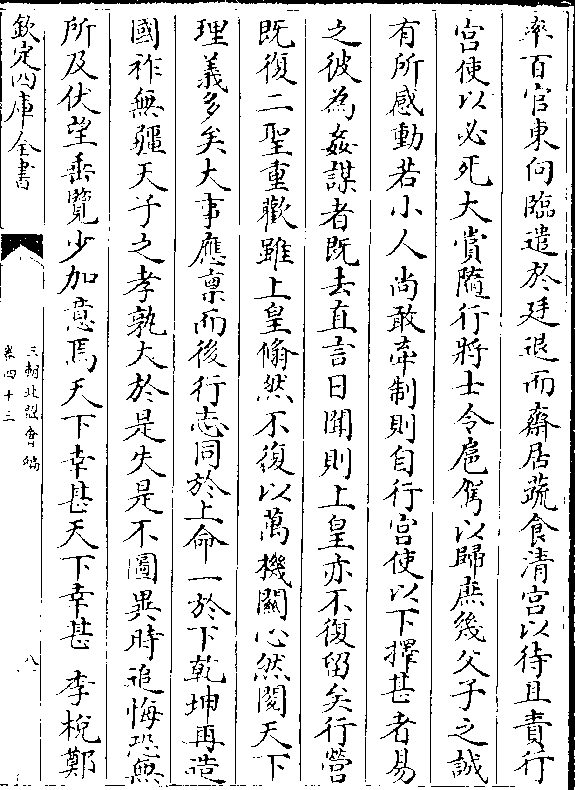 率百官東向臨遣於廷退而齋居蔬食清宫以待且責行
宫使以必死大賞隨行將士令扈駕以歸庶幾父子之誠
有所感動若小人尚敢牽制則自行宫使以下擇甚者易
之彼為姦謀者既去直言日聞則上皇亦不復留矣行營
既復二聖重歡雖上皇翛然不復以萬機關心然閲天下
理義多矣大事應禀而後行志同於上命一於下乾坤再造
國祚無疆天子之孝孰大於是失是不圖異時追悔恐無
所及伏望垂覽少加意焉天下幸甚天下幸甚 李梲鄭
欽定四庫全書
三朝北盟會編
卷四十三
八